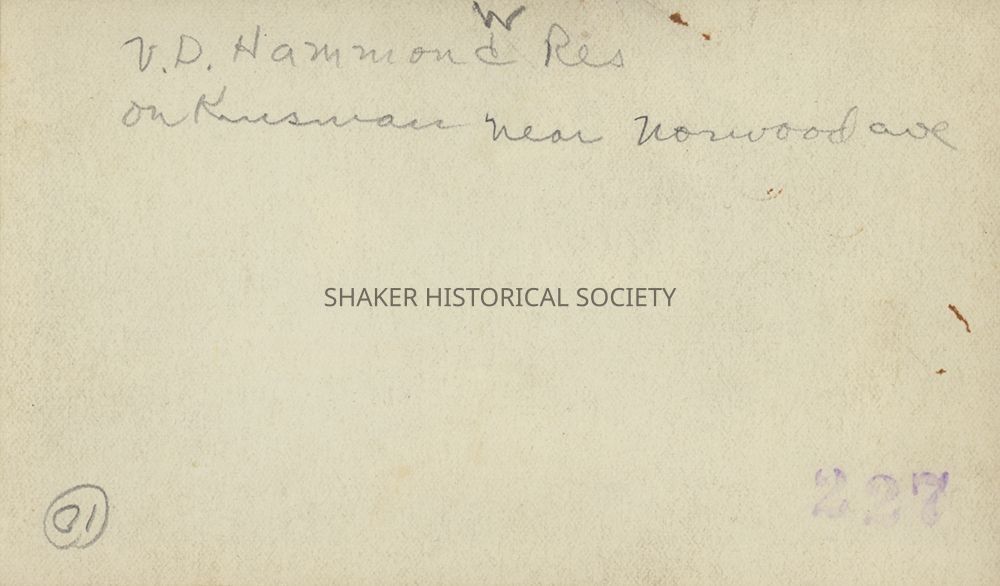 W
V.D. Hammond Res
on Kinsman near Norwood ave
SHAKER HISTORICAL SOCIETY
227
01